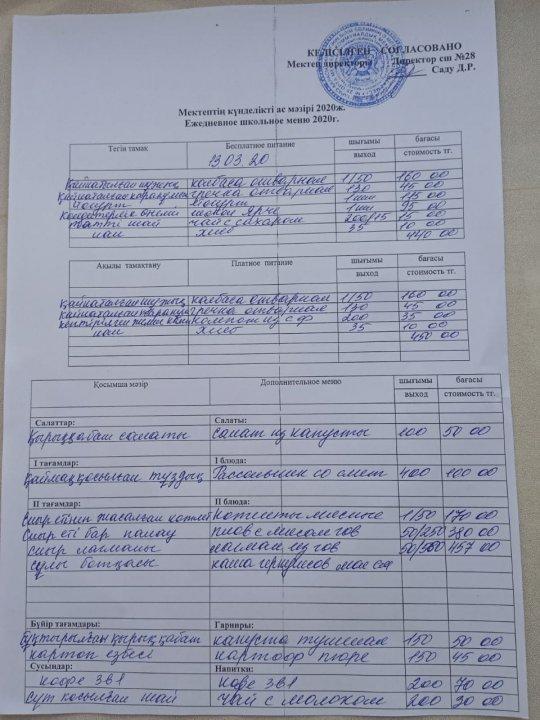 КЕЛІСІЛГЕН СОГЛАСОВАНО
Мектеп директоры Директор сш №28
Саду Д.Р.
Мектептің күнделікті ас мәзірі 2020ж.
Ежедневное школьное меню 2020г.
Тегін тамақ Бесплатное питание шығымы бағасы
13.03.20 выход стоимость тг.
колбаса отварная 1/50 160 00
гречка отварная 130 45 00
йогурт йогурт 1шт
1шт 95 00
тәтті шай чай с сахаром 200/15 15 00
нан хлеб 35 10 00
440 00
Ақылы тамақтану Платное питание шығымы бағасы
выход стоимость тг.
колбаса отварная 1/50 160 00
гречка отварная 130 45 00
компот из с ф 200 35 00
нан хлеб 35 10 00
450 00
Қосымша мәзір Дополнительное меню шығымы бағасы
выход стоимость тг.
Салаттар: Салаты:
Қырыққабат салаты салат из капусты 100 50 00
I тағамдар: I блюда:
Қаймақ қосылған тұздық Рассольник со смет 400 100 00
II тағамдар: II блюда:
Сиыр етінен жасалған котлет Котлеты мясные 1/50 170 00
Сиыр еті бар палау плов с мясом гов 50/250 380 00
сиыр лағманы лагман из гов 457 00
сұлы ботқасы каша геркулесов мол
Бүйір тағамдары: Гарниры:
Бұқтырылған қырыққабат капуста тушеная 150 50 00
картоп езбесі картоф пюре 150 45 00
Сусындар: Напитки:
кофе 3в1 кофе 3в1 200 70 00
сүт қосылған шай чай с молоком 200 30 00